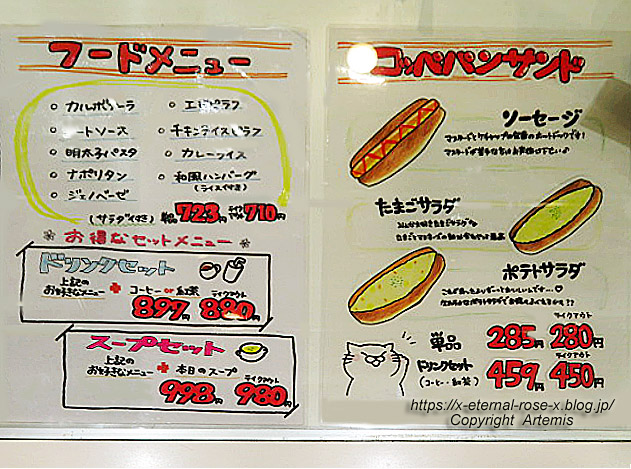 フードメニュー
カルボナーラ
エビピラフ
ミートソース
チキンライスピラフ
明太子パスタ
カレーライス
ナポリタン
和風ハンバーグ
(ライス付き)
ジェノベーゼ
(サラダ付き) 単品 723円 テイクアウト 710円
お得なセットメニュー
ドリンクセット
上記の
お好きなメニュー + コーヒー or 紅茶
897円 テイクアウト 880円
スープセット
上記の
お好きなメニュー + 本日のスープ
998円 テイクアウト 980円
コッペパンサンド
ソーセージ
マスタードとケチャップの定番のホットドックです!
たまごサラダ
ポテトサラダ
テイクアウト
単品 285円 280円
テイクアウト
ドリンクセット 459円 450円
(コーヒー・紅茶)
https://x-eternal-rose-x.blog.jp/
Copyright Artemis